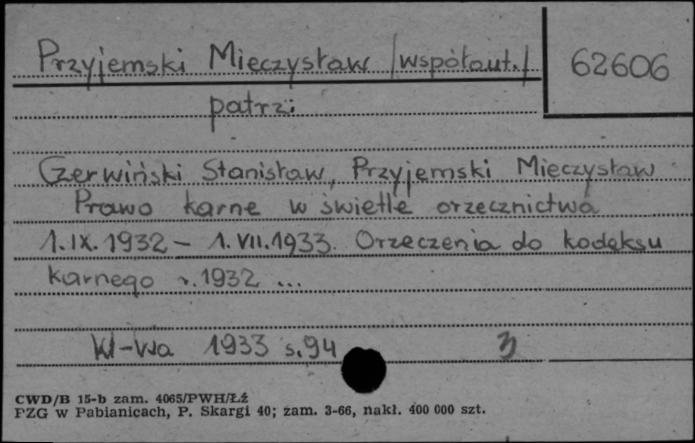 Przyjemski Mieczysław /współaut./
62606
patrz:
Czerwiński Stanisław, Przyjemski Mieczysław
Prawo karne w świetle orzecznictwa
1.IX.1932 – 1.VII.1933. Orzeczenia do kodeksu
karnego r.1932 ...
W-wa 1933 s.94 3
CWD/B 15-b zam. 4065/PWH/ŁŹ
PZG w Pabianicach, P. Skargi 40; zam. 3-66, nakł. 400 000 szt.